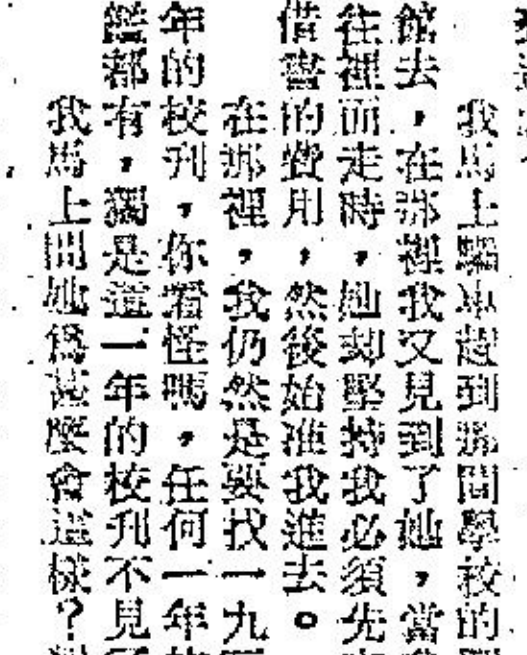 我馬上驅車趕到那間學校的
館去，在那裡我又見到了她，當
往裡面走時，她却堅持我必須先
借書的費用，然後始准我進去。
在那裡，我仍然是要找一九
年的校刊，你看怪嗎，任何一年
都有，獨是這一年的校刊不見
我馬上問她爲甚麼會這樣？